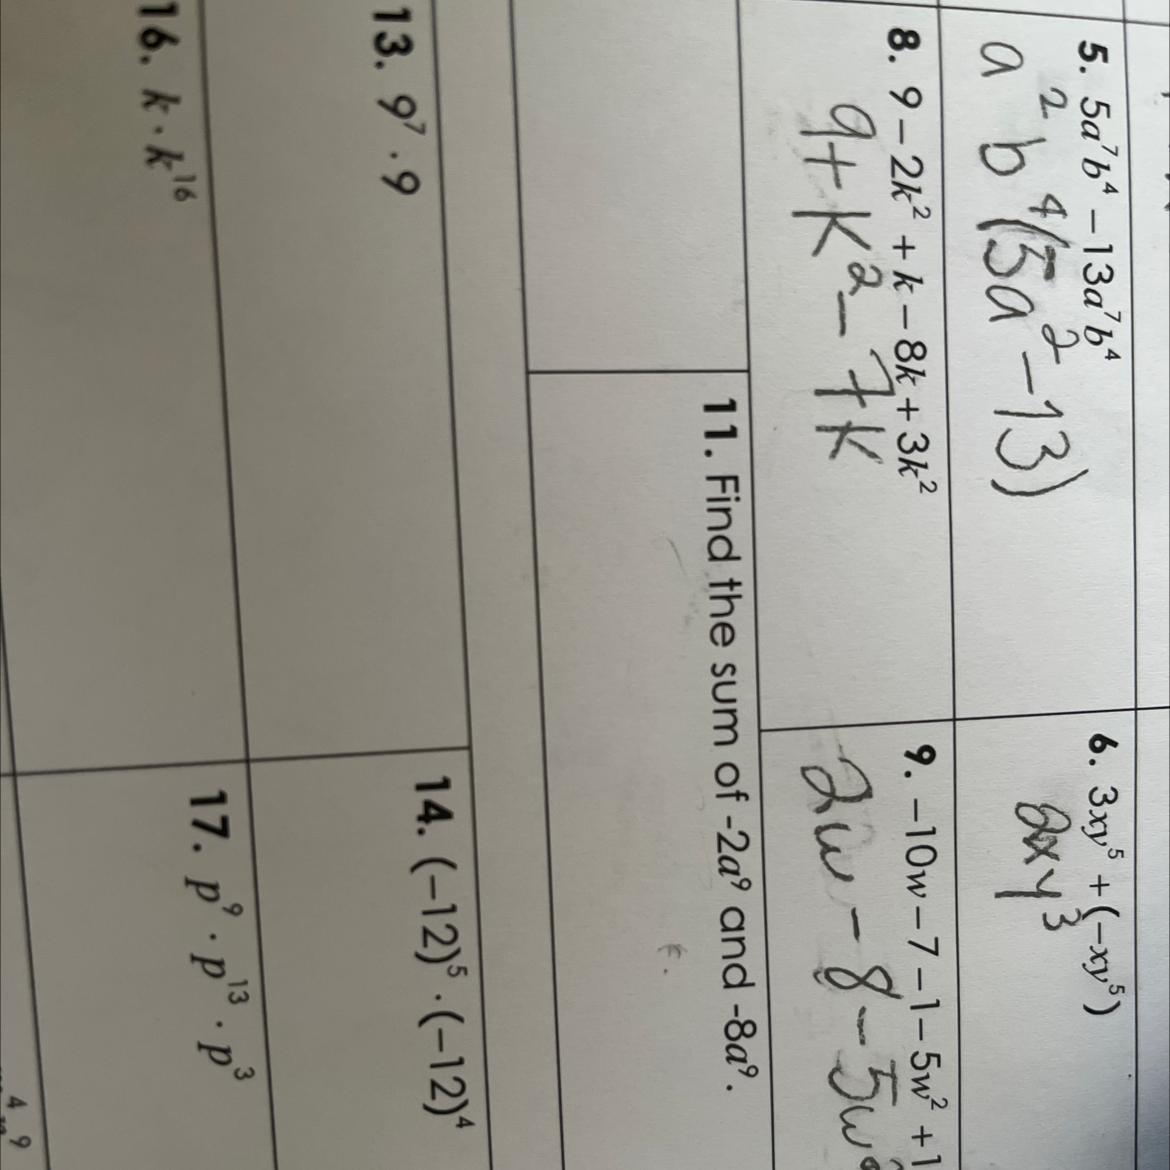 5. 5a⁷b⁴ – 13a⁷b⁴
a²b⁴(5a²–13)
6. 3xy⁵ + (–xy⁵)
2xy³
8. 9 – 2k² + k – 8k + 3k²
9+k²–7k
9. –10w – 7 – 1 – 5w² + 1
2w–8–5w
11. Find the sum of -2a⁹ and -8a⁹.
13. 9⁷ · 9
14. (–12)⁵ · (–12)⁴
16. k · k¹⁶
17. p⁹ · p¹³ · p³